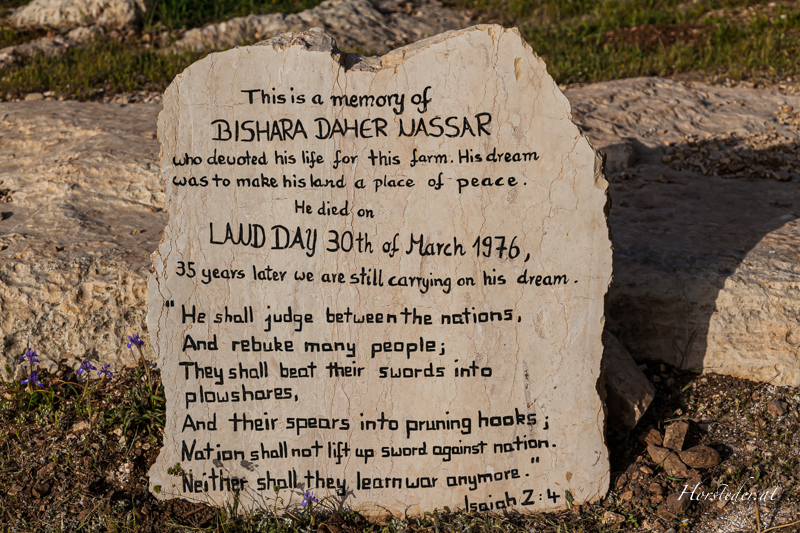 This is a memory of
BISHARA DAHER NASSAR
who devoted his life for this farm. His dream
was to make his land a place of peace.
He died on
LAND DAY 30th of March 1976,
35 years later we are still carrying on his dream.
"He shall judge between the nations,
And rebuke many people;
They shall beat their swords into
plowshares,
And their spears into pruning hooks;
Nation shall not lift up sword against nation.
Neither shall they learn war anymore."
Isaiah 2:4
Horsteder.at